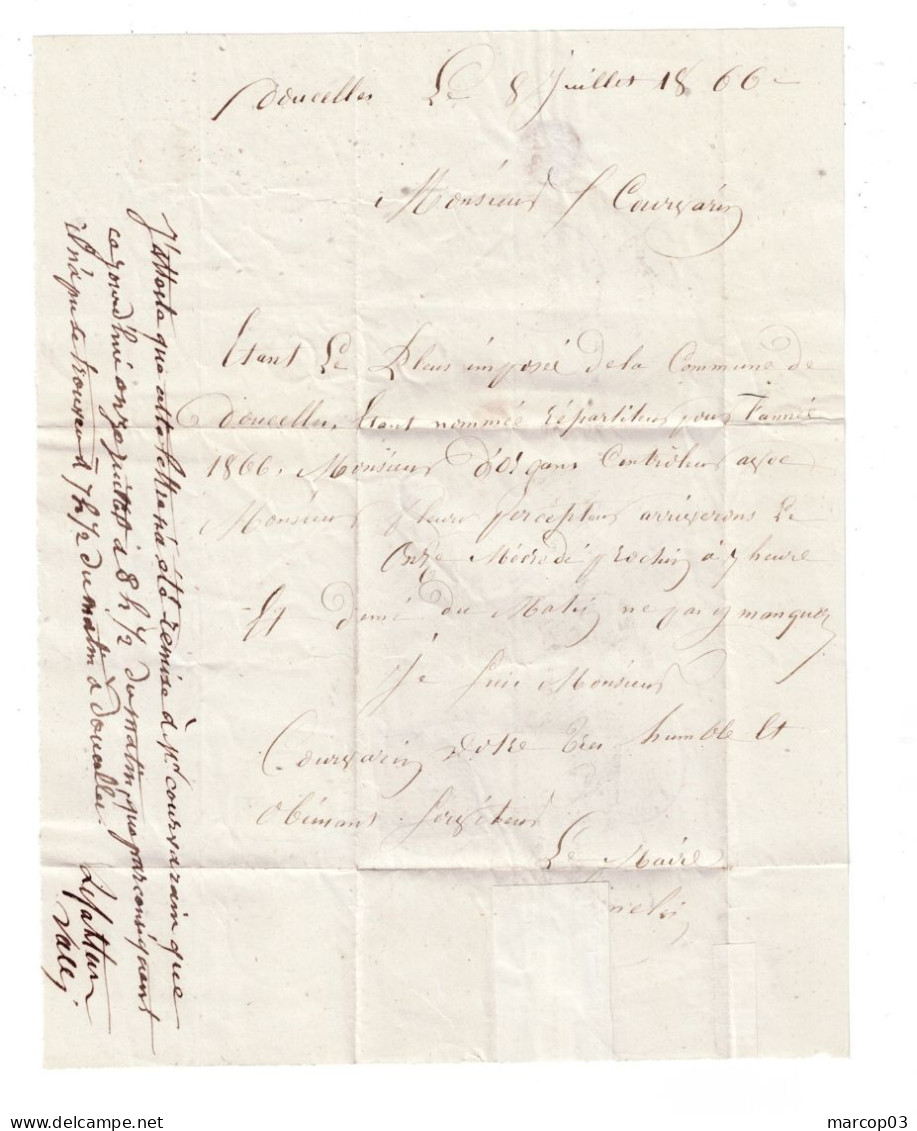 Doucelles Le 8 Juillet 1866
Monsieur f Courvarin
Etant Le Plus imposée de la Commune de
Doucelles, Etant nommée Répartiteur pour l'année
1866. Monsieur Contrôleur avec
Monsieur fleury percepteur arriverons Le
Onze Mécredé prochin à 7 heure
Et demé du Matin ne pas y manquez
Je suis Monsieur
Courvarin Votre tres humble Et
Obéisant Serviteur
Le Maire
J'atteste que cette lettre n'a été remise à Mr courvarain que
ce jourd'hui onze juillet à 8 h 1/2 du matin, que par conséquent
il n'a pu se trouver à 7 h 1/2 du matin à Doucelles.
Le facteur
marcop03